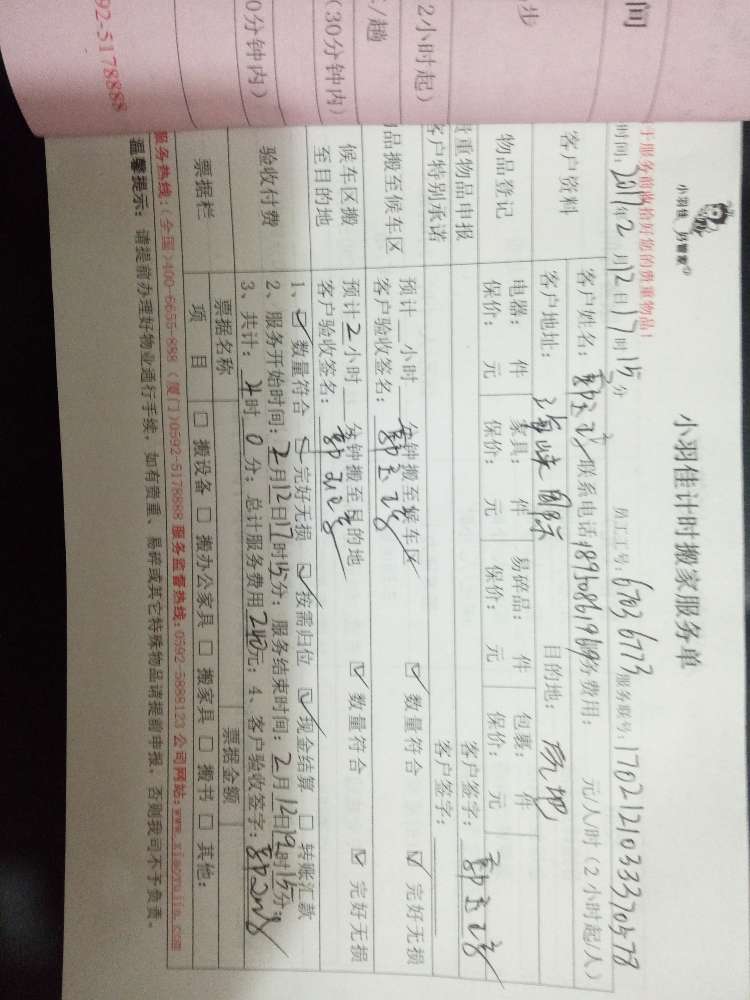 小羽佳 好管家
小羽佳计时搬家服务单
于服务前收拾好您的贵重物品！
时间：2017年2月12日17时15分 员工工号：6703 6773 服务联号：17021210333370578
客户资料
客户姓名： 联系电话：18950861969 务费用： 元/人/时（2小时起/人）
客户地址：海峡国际 目的地：
物品登记
电器： 件 家具： 件 易碎品： 件 包裹： 件
保价： 元 保价： 元 保价： 元 保价： 元
贵重物品申报 客户签字：
客户特别承诺 客户签字：
品搬至候车区
预计 小时 分钟搬至候车区 ☑ 数量符合 ☑ 完好无损
客户验收签名：
候车区搬至目的地
预计2小时 分钟搬至目的地 ☑ 数量符合 ☑ 完好无损
客户验收签名：
验收付费
1、☑ 数量符合 ☑ 完好无损 ☑ 按需归位 ☑ 现金结算 □ 转账汇款
2、服务开始时间：2月12日17时15分；服务结束时间：2月12日19时15分；
3、共计： 时 0 分；总计服务费用240元；4、客户验收签字：
票据栏
票据名称 票据金额
项 目 □ 搬设备 □ 搬办公家具 □ 搬家具 □ 搬书 □ 其他：
服务热线：（全国）400-6655-888（厦门）0592-5178888 服务监督热线：0592-5888123 公司网站：www.xiaoyujia.com
温馨提示：请提前办理好物业通行手续，如有贵重、易碎或其它特殊物品请提前申报，否则我司不予负责。
间
步
2小时起）
/趟
（30分钟内）
0分钟内）
92-5178888